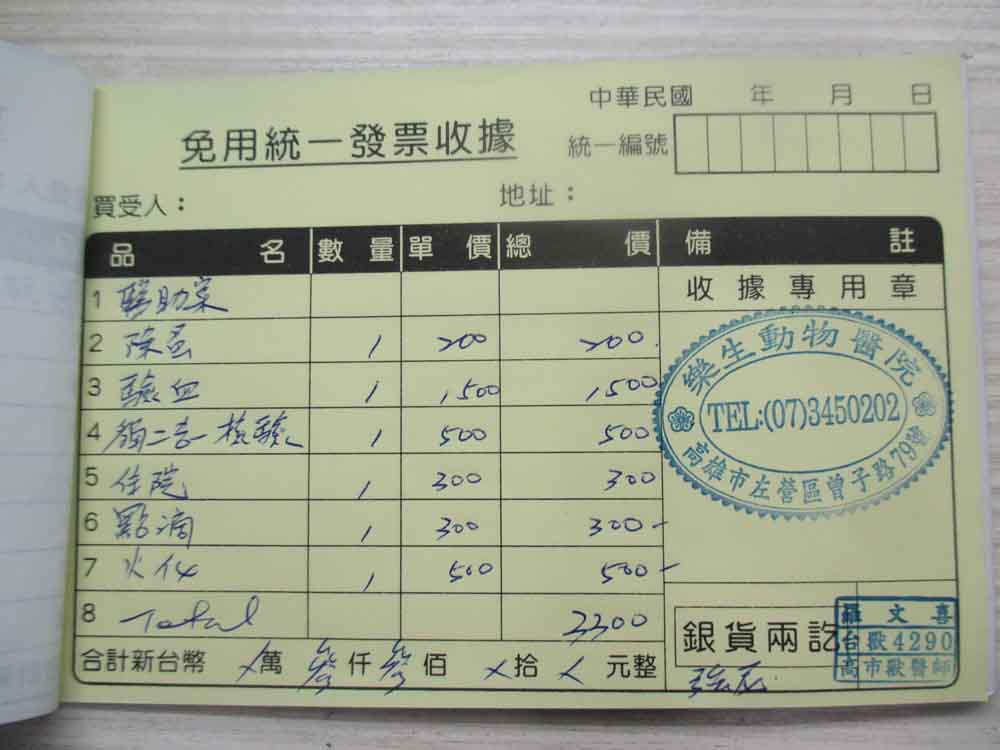 中華民國 年 月 日
免用統一發票收據
統一編號
買受人： 地址：
品 名 數量 單價 總價 備 註
收據專用章
1
2 除蚤 1 200 200
3 驗血 1 1,500 1,500
4 1 500 500
5 住院 1 300 300
6 點滴 1 300 300-
7 火化 1 500 500-
8 Total 3300
合計新台幣 ㄨ萬 参仟参佰 ㄨ拾 元整
樂生動物醫院
TEL:(07)3450202
高雄市左營區曾子路79號
銀貨兩訖
羅文喜
台獸4290
高市獸醫師